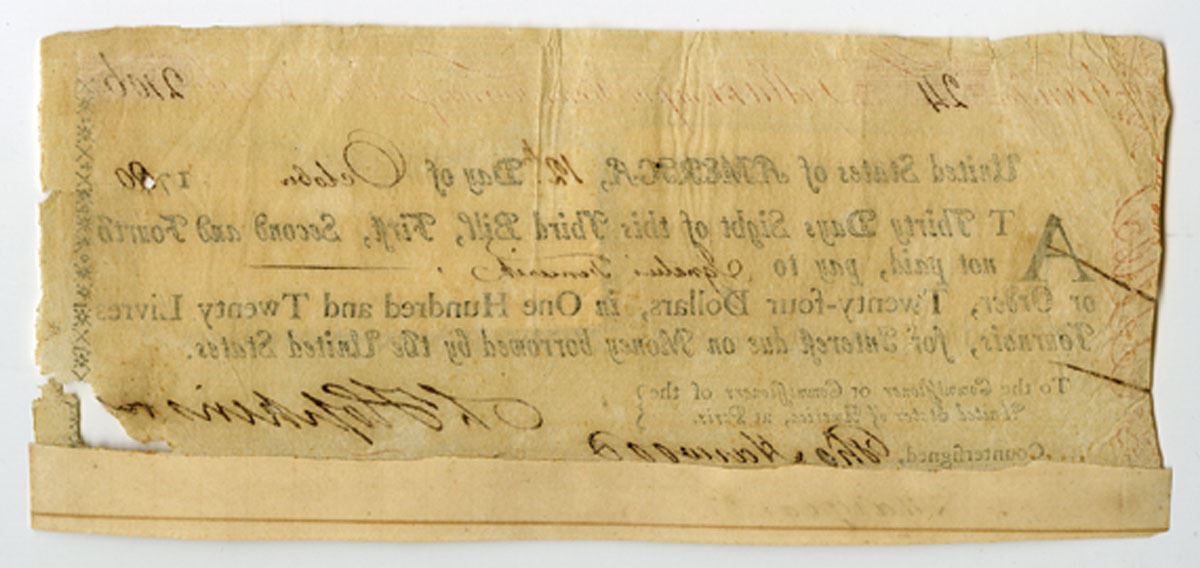 24 2106
United States of AMERICA, 12th Day of October 1780
AT Thirty Days Sight of this Third Bill, First, Second and Fourth
not paid, pay to Ignatius Fenwick
or Order, Twenty-four Dollars, in One Hundred and Twenty Livres
Tournois, for Interest due on Money borrowed by the United States.
To the Commissioner or Commissioners of the
United States of America, at Paris.
Fs Hopkinson
Countersigned, Tho Harwood